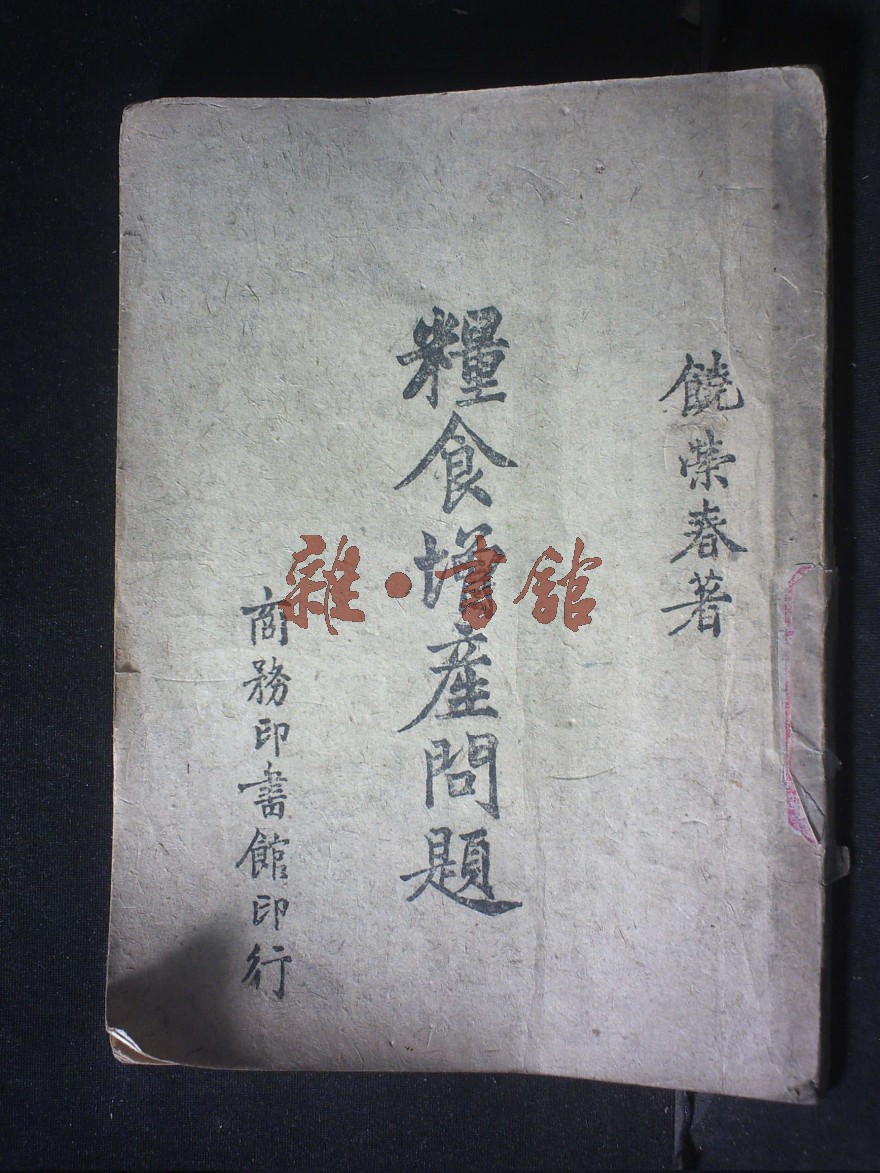 饒榮春著
糧食增產問題
商務印書館印行
雜·書館